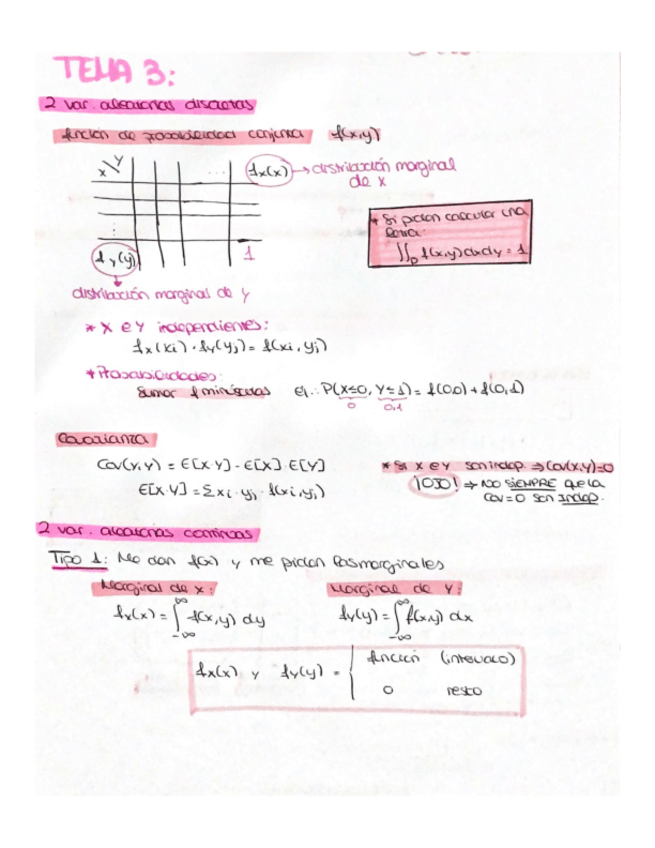 TEMA 3:
2 var. aleatorias discretas
función de probabilidad conjunta f(x,y)
x \ y ... fx(x) → distribución marginal
de x
⋮
fy(y) 1
distribución marginal de y
* Si piden calcular una
:
∫∫D f(x,y)dxdy = 1
* X e Y independientes:
fx(xi) · fy(yj) = f(xi, yj)
* Probabilidades:
Sumar f minúsculas ej.: P(X≤0, Y≤1) = f(0,0) + f(0,1)
0 0,1
Covarianza
Cov(X,Y) = E[X·Y] - E[X]·E[Y]
E[X·Y] = Σxi · yj · f(xi,yj)
* Si X e Y son indep. ⇒ Cov(x,y)=0
¡OJO! ⇒ NO SIEMPRE que la
Cov=0 son indep.
2 var. aleatorias continuas
Tipo 1: Me dan f(x) y me piden las marginales
Marginal de x:
fx(x) = ∫-∞^∞ f(x,y) dy
Marginal de y:
fy(y) = ∫-∞^∞ f(x,y) dx
fx(x) y fy(y) = { función (intervalo)
0 resto